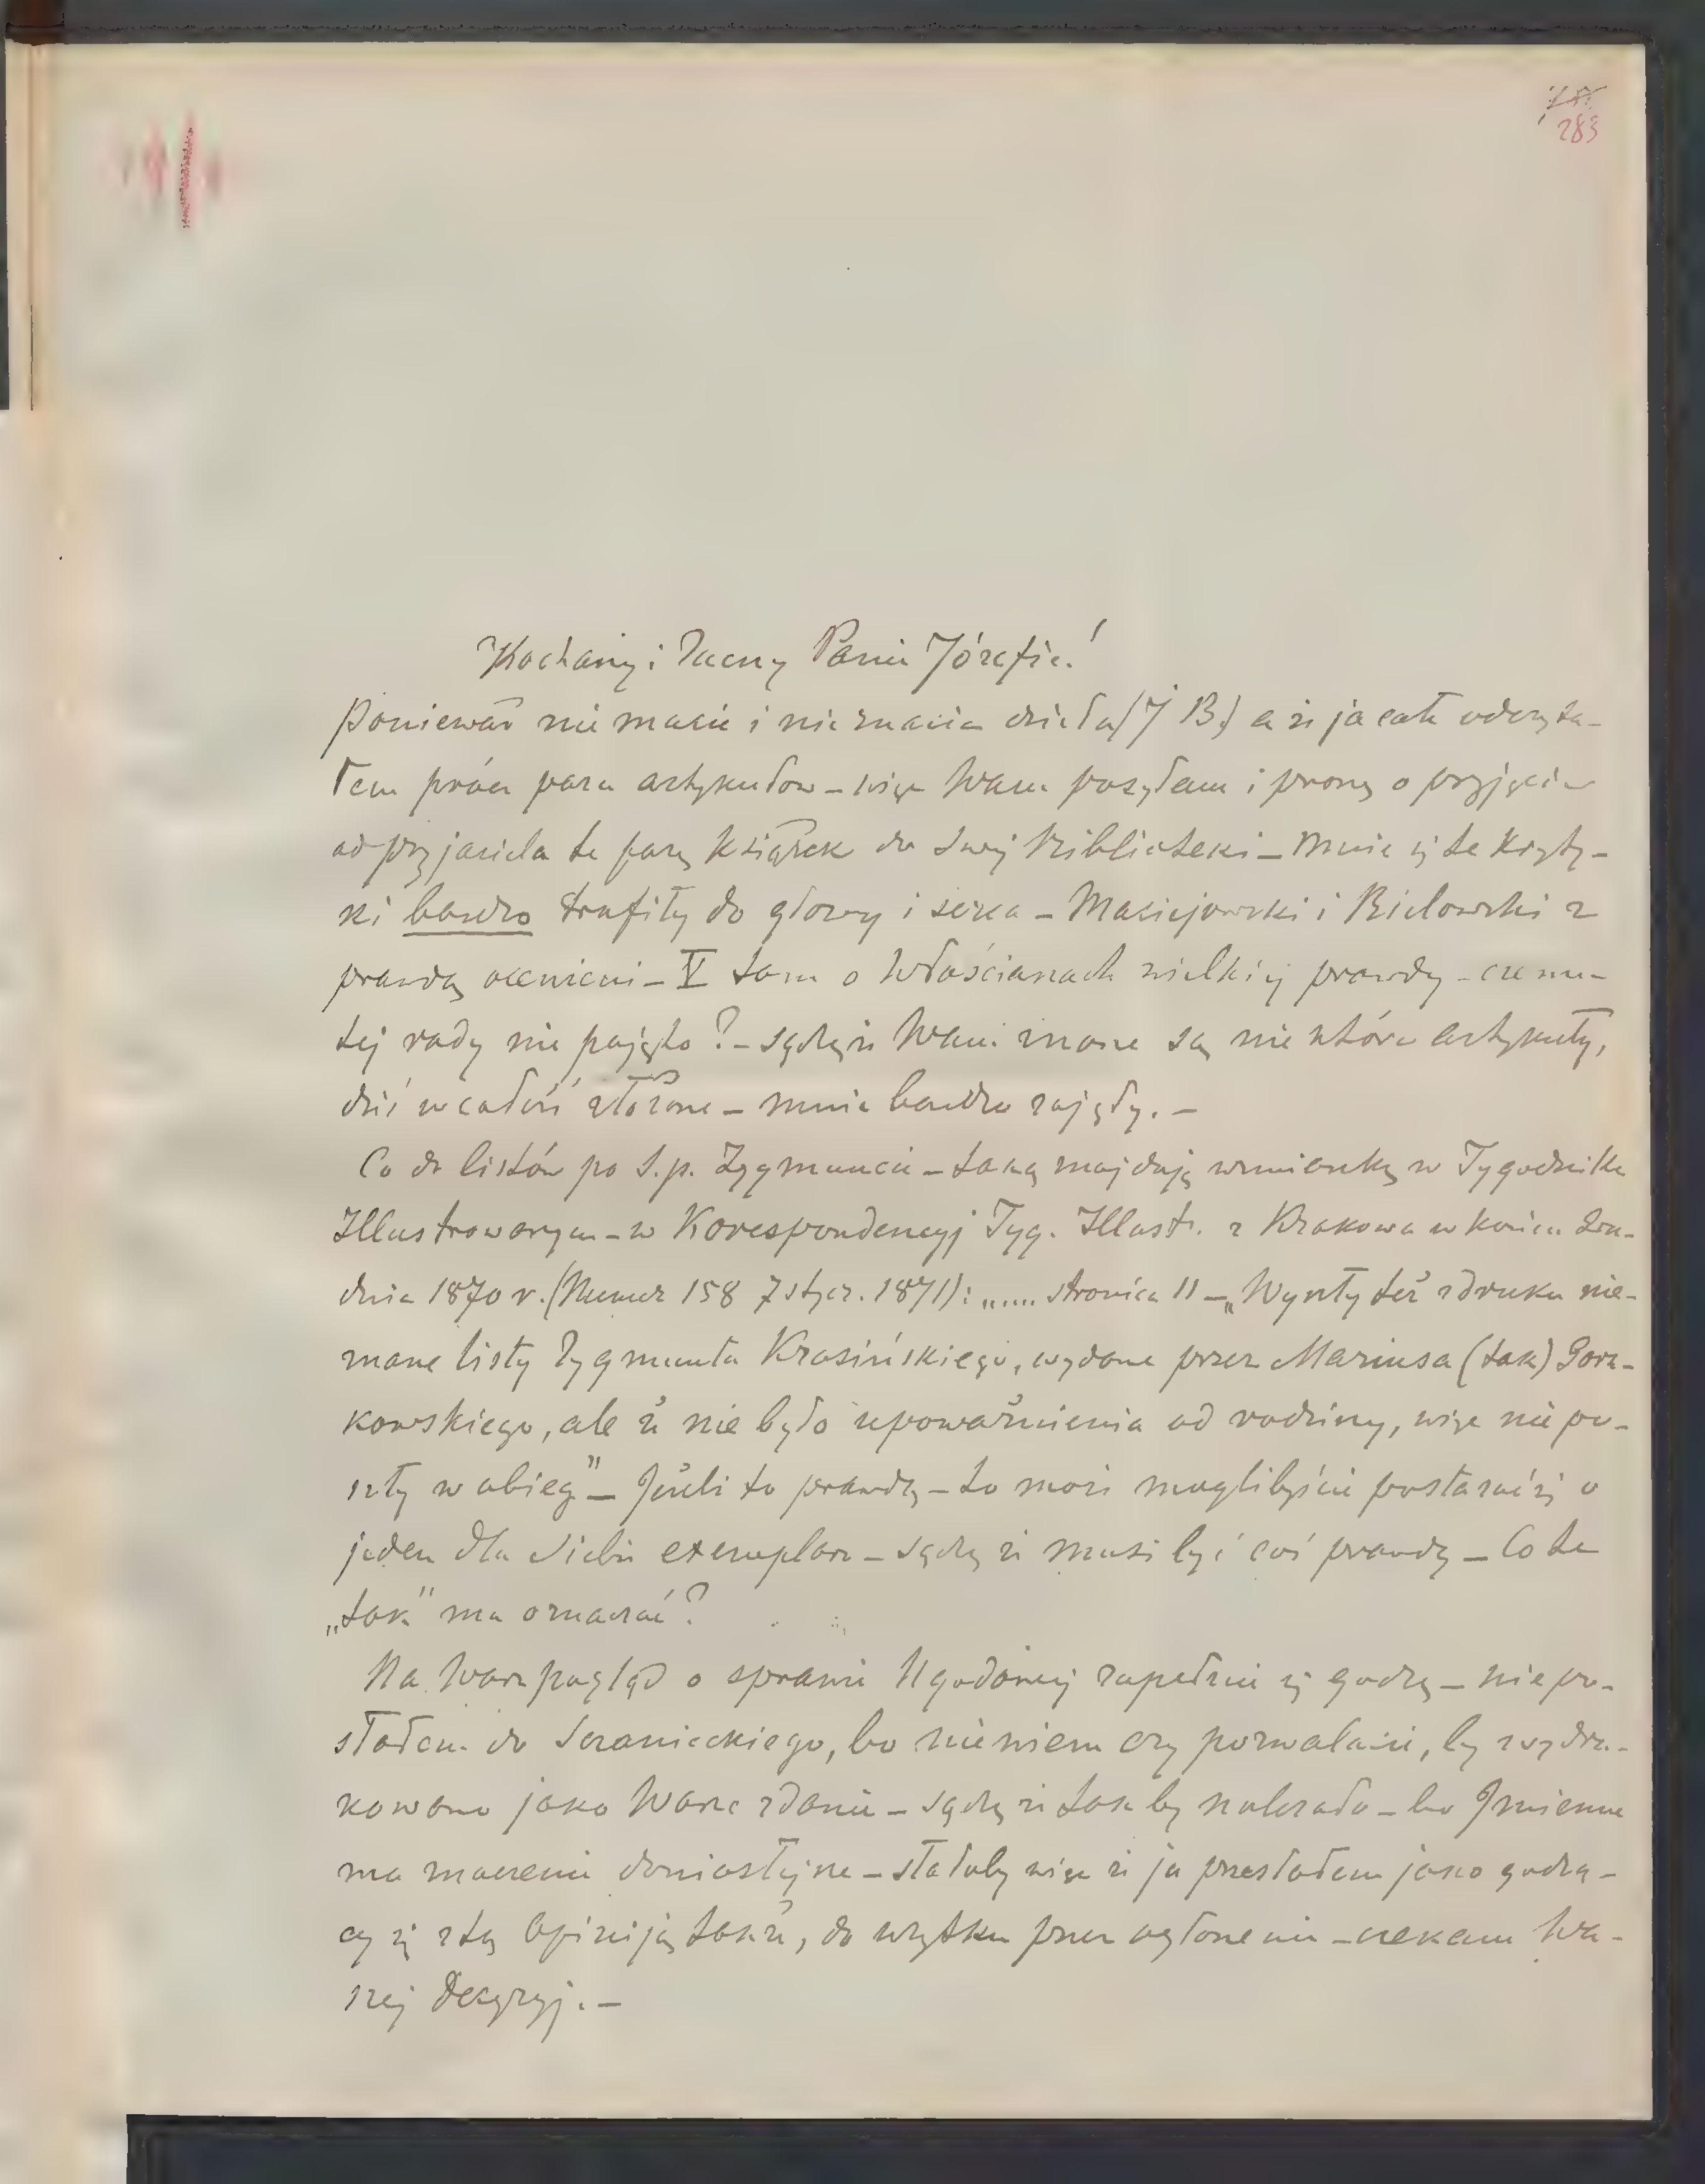 283
Kochany i Zacny Panie Józefie!
Ponieważ nie macie i nie znacie dzieła (J B.) a że ja całe odczyta-
łem prócz paru artykułów – więc Wam posyłam i proszę o przyjęcie
od przyjaciela te parę książek do swej Biblioteki – Mnie się te kryty-
ki bardzo trafiły do głowy i serca – Maciejowski i Bielowski z
prawdą ocenieni – V tom o Włościanach wielkiej prawdy – czemu
tej rady nie pojęto? – sądzę że Wam znane są niektóre artykuły,
dziś w całość złożone – mnie bardzo zajęły. –
Co do listów po ś.p. Zygmuncie – taką znajduję wzmiankę w Tygodniku
Illustrowanym – w Korespondencyj Tyg. Illustr. z Krakowa w końcu Gru-
dnia 1870 r. (Numer 158 7 stycz. 1871): „..... stronica 11 – „Wyszły też z druku nie-
znane listy Zygmunta Krasińskiego, wydane przez Mariusa (tak) Gorz-
kowskiego, ale że nie było upoważnienia od rodziny, więc nie po-
szły w obieg" – Jeżeli to prawda – to może moglibyście postarać się o
jeden dla siebie exemplarz – sądzę że musi być coś prawdy – Co te
„tak" ma oznaczać?
Na Wasz pogląd o sprawie Ugodowej zupełnie się godzę – nie po-
słałem do Sczanieckiego, bo nie wiem czy pozwalacie, by wydru-
kowano jako Wasze zdanie – sądzę że tak by należało – bo Imienne
ma znaczenie donioślejsze – stałoby więc że ja przesłałem jako godzą-
cy się z tą Opiniją także, do użytku przez ogłoszenie – czekam Wa-
szej Decyzyj. –